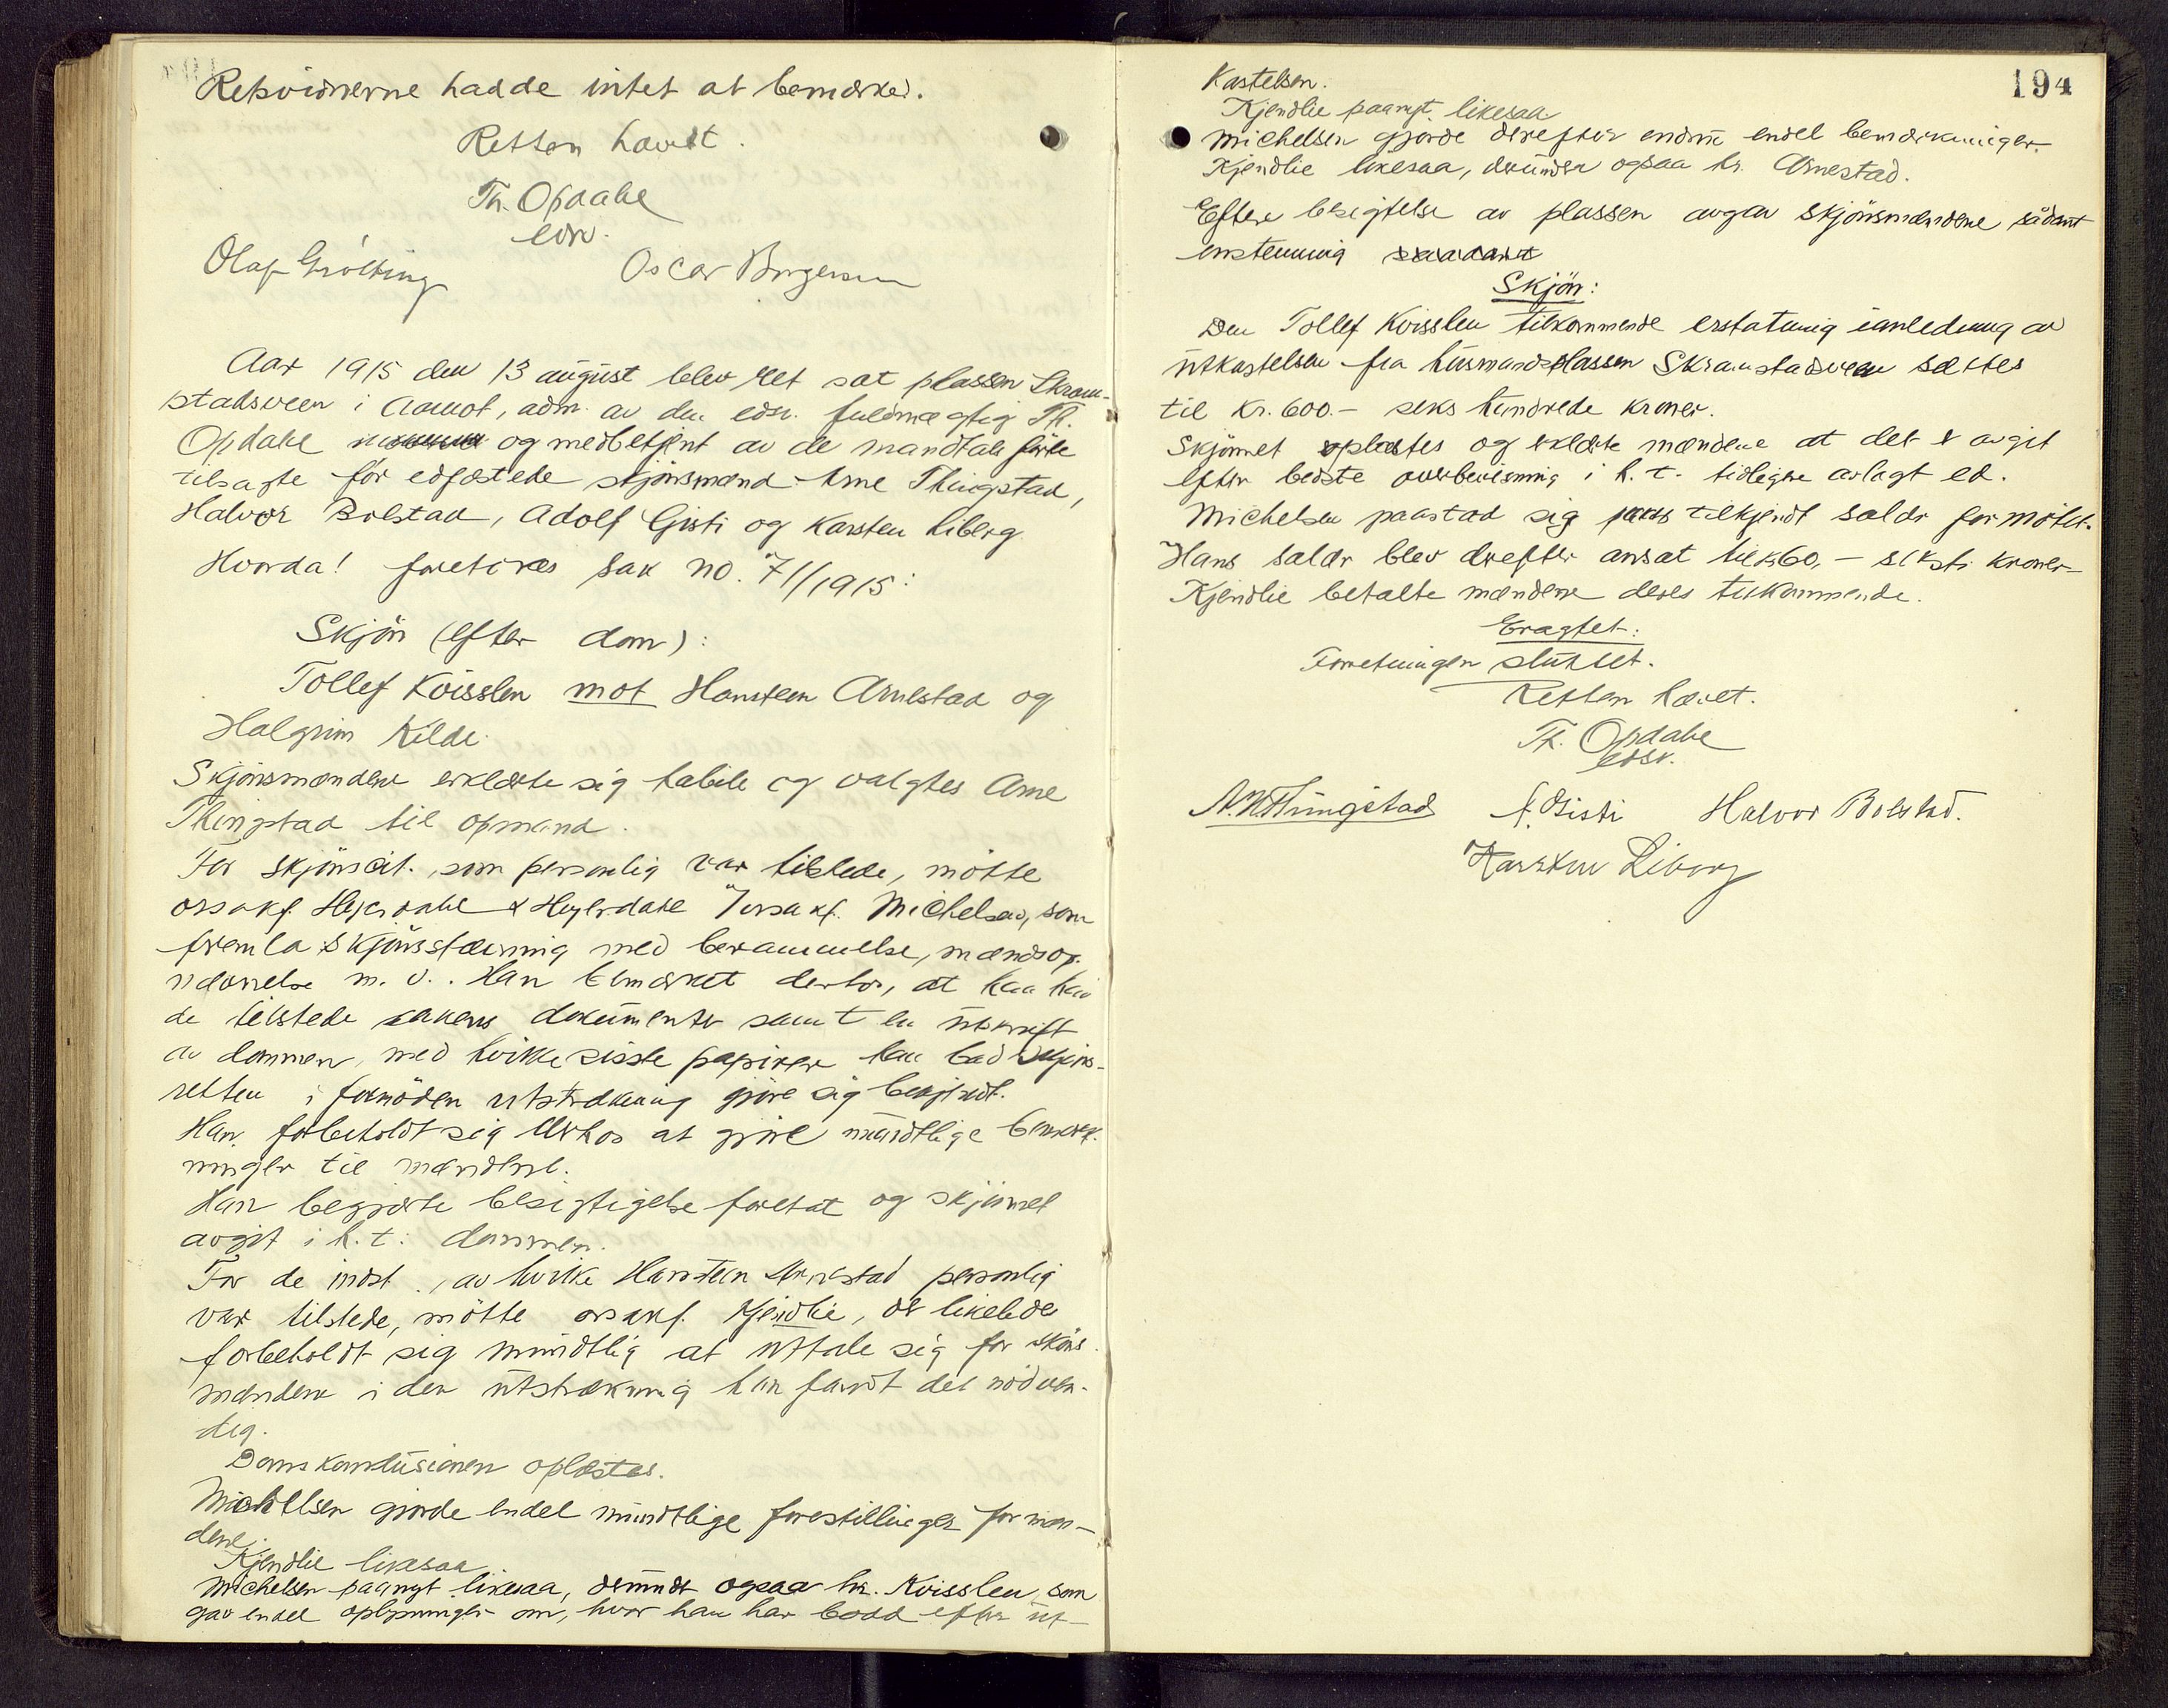 Rekvirenterne hadde intet at bemærke.
Retten hævet.
Th. Opdahl
edsv.
Olaf Grötting Oscar Borgersen
Aar 1915 den 13 august blev ret sat plassen Skram-
stadsveen i Aamot, adm. av den edsv. fuldmægtig Th.
Opdahl og medbetjent av de mandtalsførte
tilsagte før edfæstede skjönsmænd Arne Thingstad,
Halvor Bolstad, Adolf Gisti og Karsten Liberg
Hvorda! foretokes sak no. 71/1915:
Skjön (efter dom):
Tollef Kvisslen mot Hanstein Arnestad og
Halgrim Kilde.
Skjönsmændene erklærte sig habile og valgtes Arne
Thingstad til opmand.
For skjönscit. som personlig var tilstede, mötte
orsakf. Heyerdahl & Heyerdahl v/orsakf. Michelsen, som
fremla skjönsstævning med berammelse, mændsop-
nævnelse m. v. Han bemærket derhos, at han hav-
de tilstede sakens dokumenter samt en utskrift
av dommen, med hvilke sisste papirer han bad skjöns-
retten i fornöden utstrækning gjöre sig bekjendt.
Han forbeholdt sig derhos at gjöre mundtlige bemerk-
ninger til mændene.
Han begjærte besigtigelse foretat og skjönnet
avgit i h. t. dommen.
For de indst., av hvilke Hanstein Arnestad personlig
var tilstede, mötte orsakf. Kjendlie, der likeledes
forbeholdt sig mundtlig at uttale sig for skjöns-
mændene i den utstrækning han fandt det nödven-
dig.
Domskonklusionen oplæstes.
Michelsen gjorde endel mundtlige forestillinger for mæn-
dene.
Kjendlie likesaa.
Michelsen paanyt likesaa, derunder ogsaa hr. Kvisslen, som
gav endel oplysninger om, hvor han har bodd efter ut-
194
kastelsen.
Kjendlie paanyt likesaa
Michelsen gjorde derefter endnu endel bemerkninger.
Kjendlie likesaa, derunder ogsaa hr. Arnestad.
Efter besigtelse av plassen avgav skjönsmændene sådant
enstemmig saadant
Skjön:
Den Tollef Kvisslen tilkommende erstatning ianledning av
utkastelsen fra husmandsplassen Skramstadsveen sættes
til kr. 600.- seks hundrede kroner.
Skjönnet oplæstes og erklærte mændene at det er avgit
efter bedste overbevisning i h. t. tidligere avlagt ed.
Michelsen paastod sig tilkjendt salær for mötet.
Hans salær blev derefter ansat til kr 60,- seksti kroner-
Kjendlie betalte mændene deres tilkommende.
Eragtet:
Forretningen sluttet.
Retten hævet.
Th. Opdahl
edsv.
A. N. Thingstad A. Gisti Halvor Bolstad.
Karsten Liberg